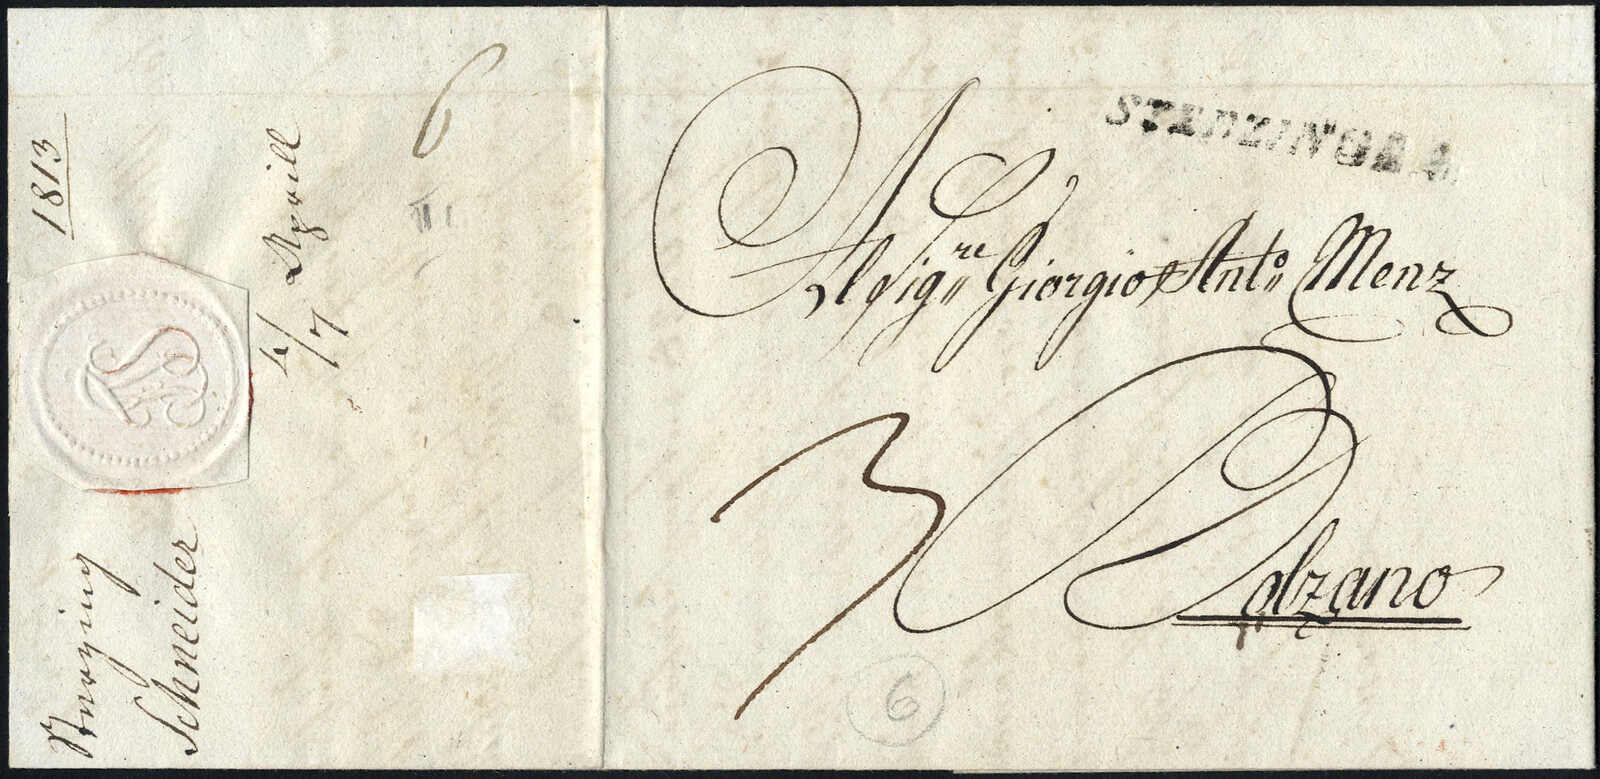 1813
6
Aprill
7
Schneider
STERZINGEN
Al Sig.re Giorgio Ant.o Menz
3
Bolzano
6